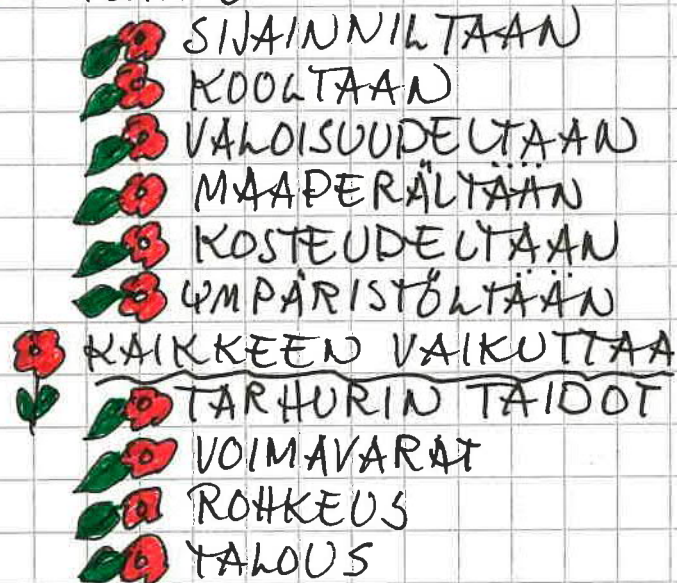 SIJAINNILTAAN
KOOLTAAN
VALOISUUDELTAAN
MAAPERÄLTÄÄN
KOSTEUDELTAAN
YMPÄRISTÖLTÄÄN
KAIKKEEN VAIKUTTAA
TARHURIN TAIDOT
VOIMAVARAT
ROHKEUS
TALOUS